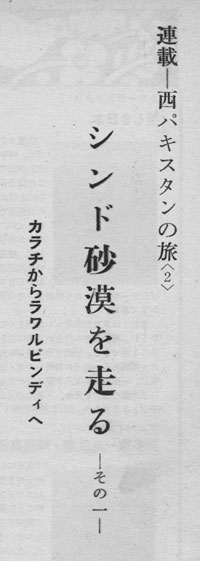 連載―西パキスタンの旅〈2〉
シンド砂漠を走る―その一―
カラチからラワルピンディへ